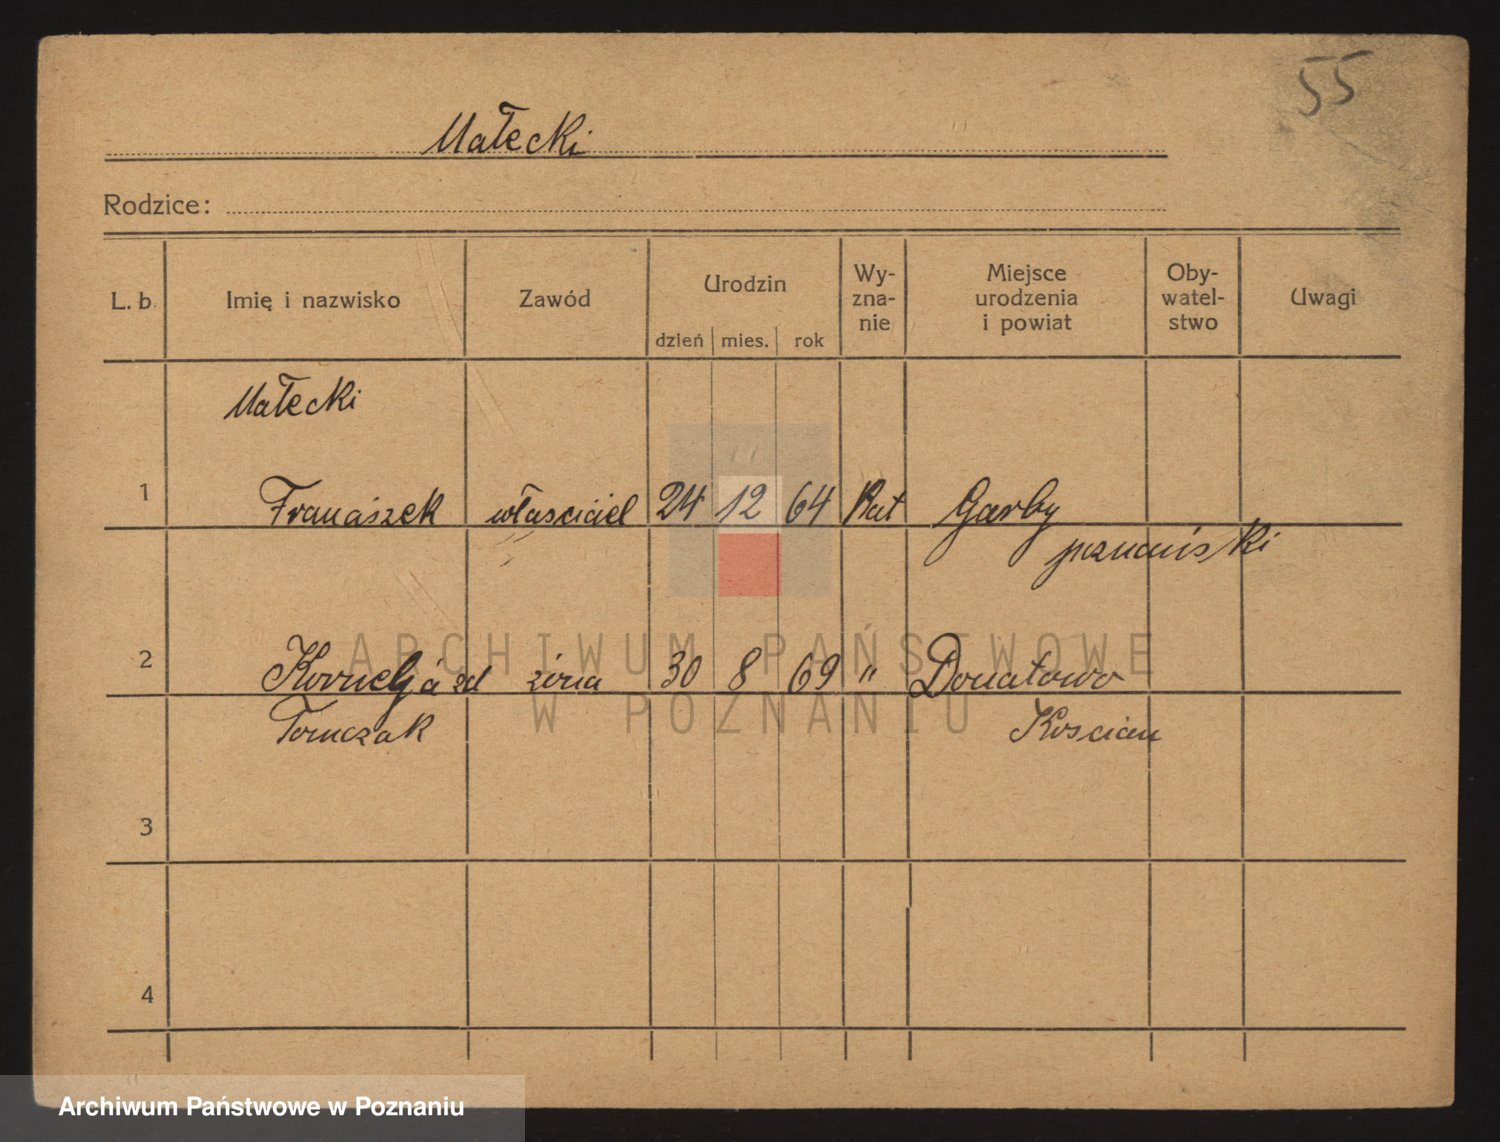 55
Małecki
Rodzice:
L. b. Imię i nazwisko Zawód Urodzin dzień mies. rok Wy-zna-nie Miejsce urodzenia i powiat Oby-watel-stwo Uwagi
Małecki
1 Franciszek właściciel 24 12 64 Kat Garby
poznański
2 zd żona 30 8 69 " Donatowo
Tomczak Kościan
3
4
ARCHIWUM PAŃSTWOWE
W POZNANIU
Archiwum Państwowe w Poznaniu